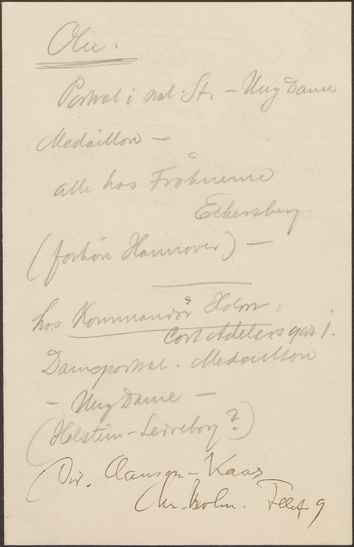 Olie.
Portræt i nat: St. – Ung Dame
Medaillon –
alle hos Frøknerne
Eckersberg
(forhør Hannover) –
hos Kommandør Holm.
Cort Adelersgad 1.
Dameportræt. Medaillon
– Ung Dame –
(Holstein-Ledreborg?)
Dir. Clauson-Kaas
Chr.holm. Telef 9